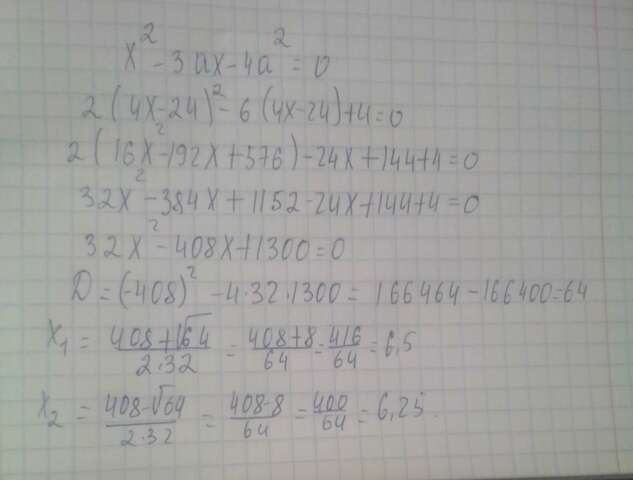 x² - 3ax - 4a² = 0
2(4x-24)² - 6(4x-24)+4=0
2(16x²-192x+576)-24x+144+4=0
32x²-384x+1152-24x+144+4=0
32x²-408x+1300=0
D=(-408)²-4·32·1300=166464-166400=64
x₁ = (408+√64)/(2·32) = (408+8)/64 = 416/64 = 6,5
x₂ = (408-√64)/(2·32) = (408-8)/64 = 400/64 = 6,25.